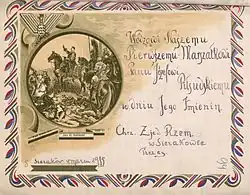 Wodzowi Naszemu
Pierwszemu Marszałkowi
Panu Józefowi
Piłsudskiemu
w Dniu Jego Imienin
Chrz. Zjed. Rzem.
w Sierakowie
Sieraków w marcu 19